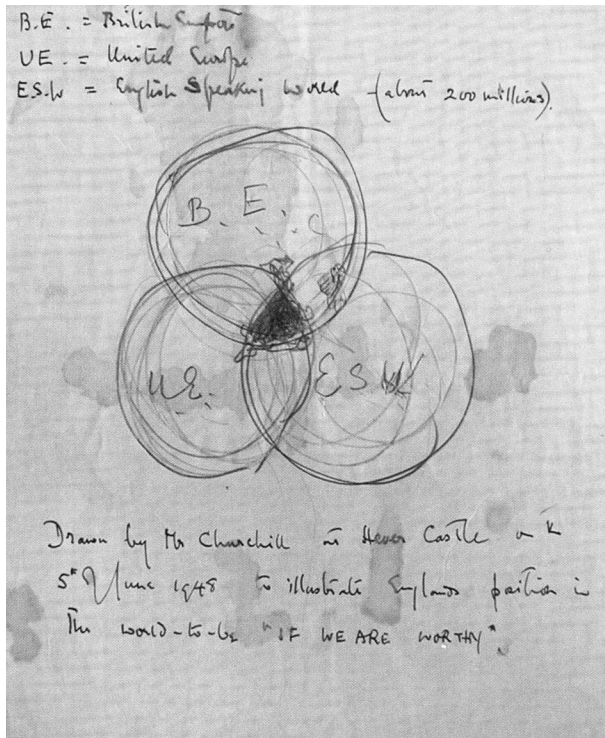 B.E. = British Empire
UE. = United Europe
ES.W = English Speaking World (about 200 millions).
B. E. C
UE.
ESW
Drawn by Mr Churchill at Hever Castle on
5th June 1948 to illustrate Englands position in
the world-to-be "IF WE ARE WORTHY".